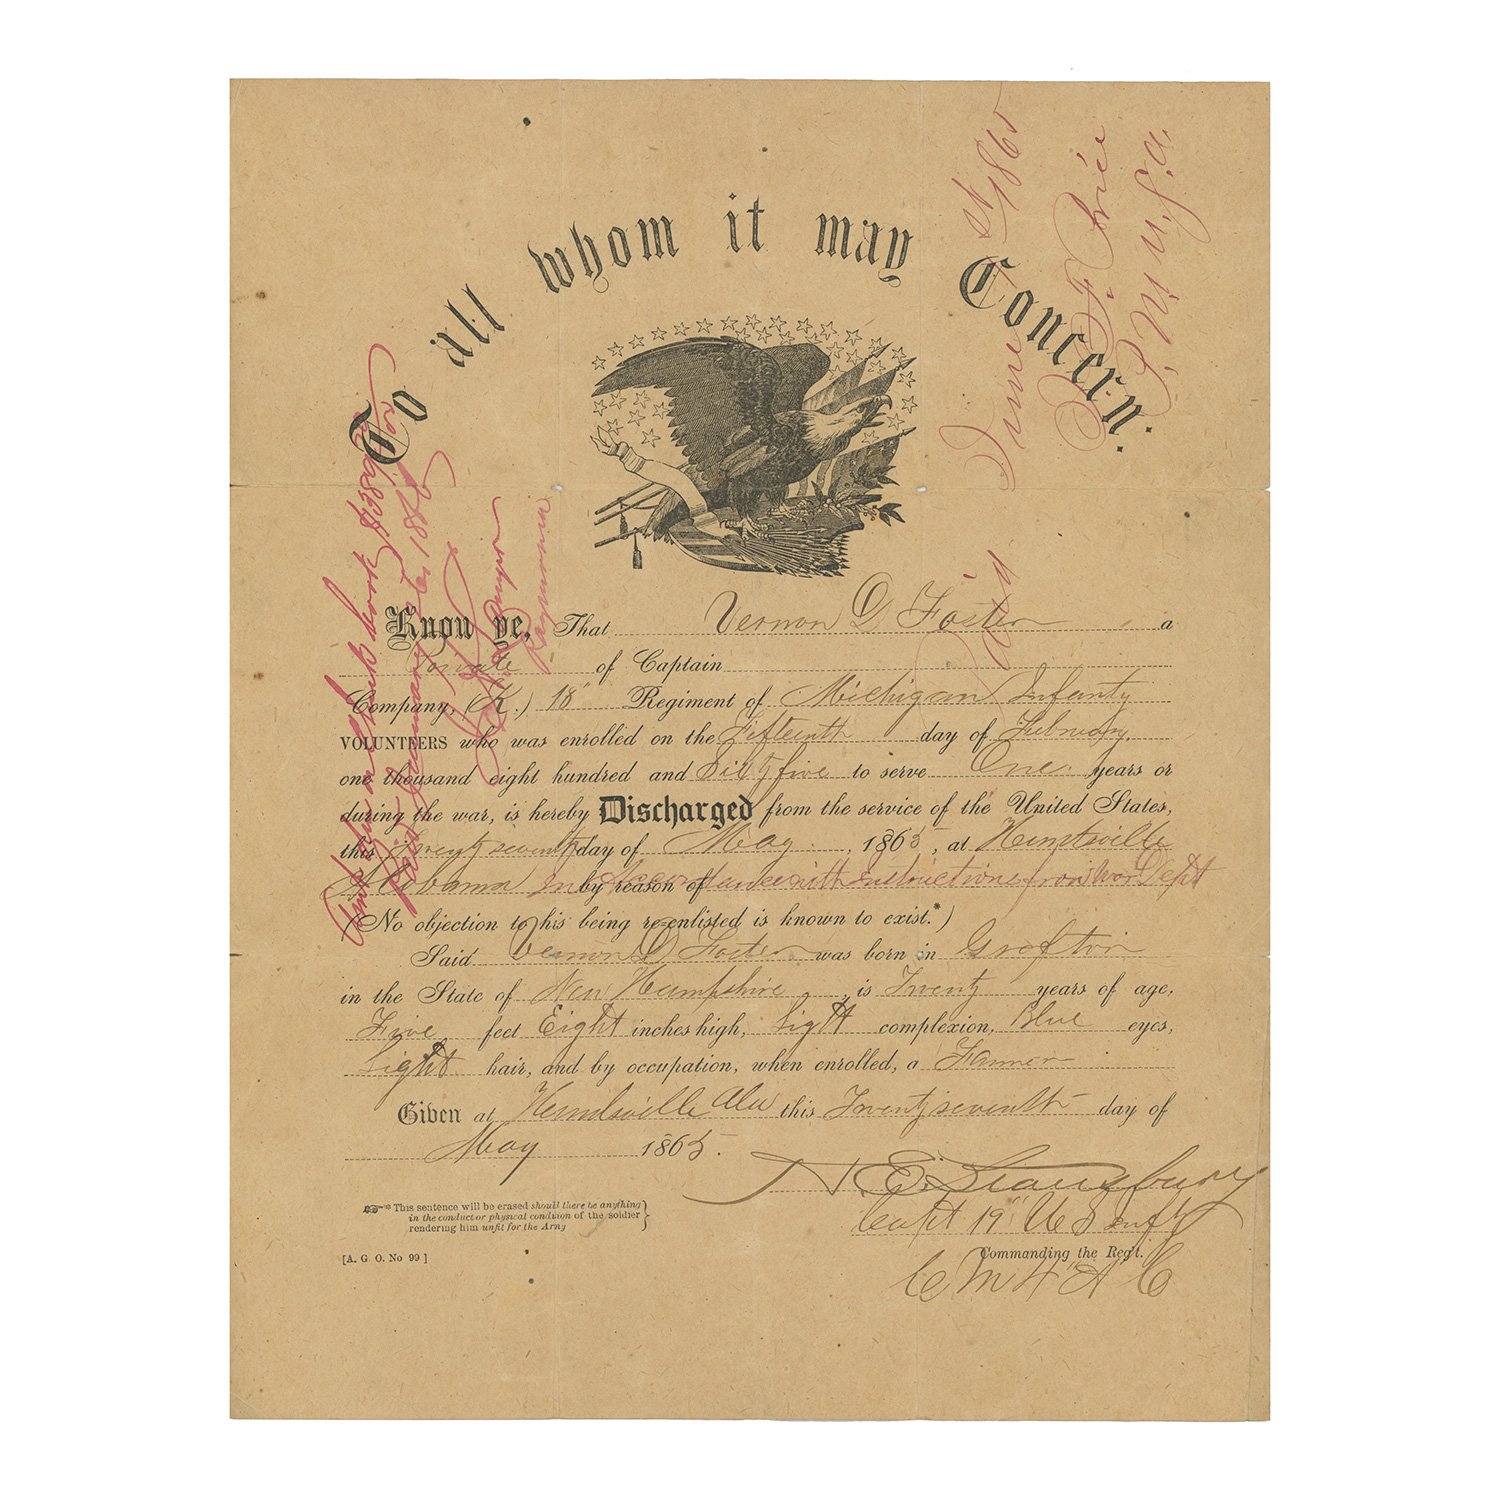 To all whom it may Concern.
Know ye, That Vernon D Foster a
Private of Captain
Company, (K.) 18" Regiment of Michigan Infanty
VOLUNTEERS who was enrolled on the Fifteenth day of February
one thousand eight hundred and Sixty five to serve One years or
during the war, is hereby Discharged from the service of the United States,
this Twenty seventh day of May, 1865, at Huntsville
Alabama In by reason of Accordance with instructions from War Dept
(No objection to his being re-enlisted is known to exist.*)
Said Vernon D Foster was born in Grafton
in the State of New Hampshire, is Twenty years of age,
Five feet Eight inches high, Light complexion, Blue eyes,
Light hair, and by occupation, when enrolled, a Farmer
Given at Huntsville Ala this Twenty seventh day of
May 1865.
N. E. Stansbury
Capt 19" U S Infty
Commanding the Reg't.
C M 4" A C
*This sentence will be erased should there be anything
in the conduct or physical condition of the soldier
rendering him unfit for the Army
[A. G O. No 99]
Paid
June 1st 1865
F. Price
P. M. U. S. A.
in check book
Paid
Paymaster